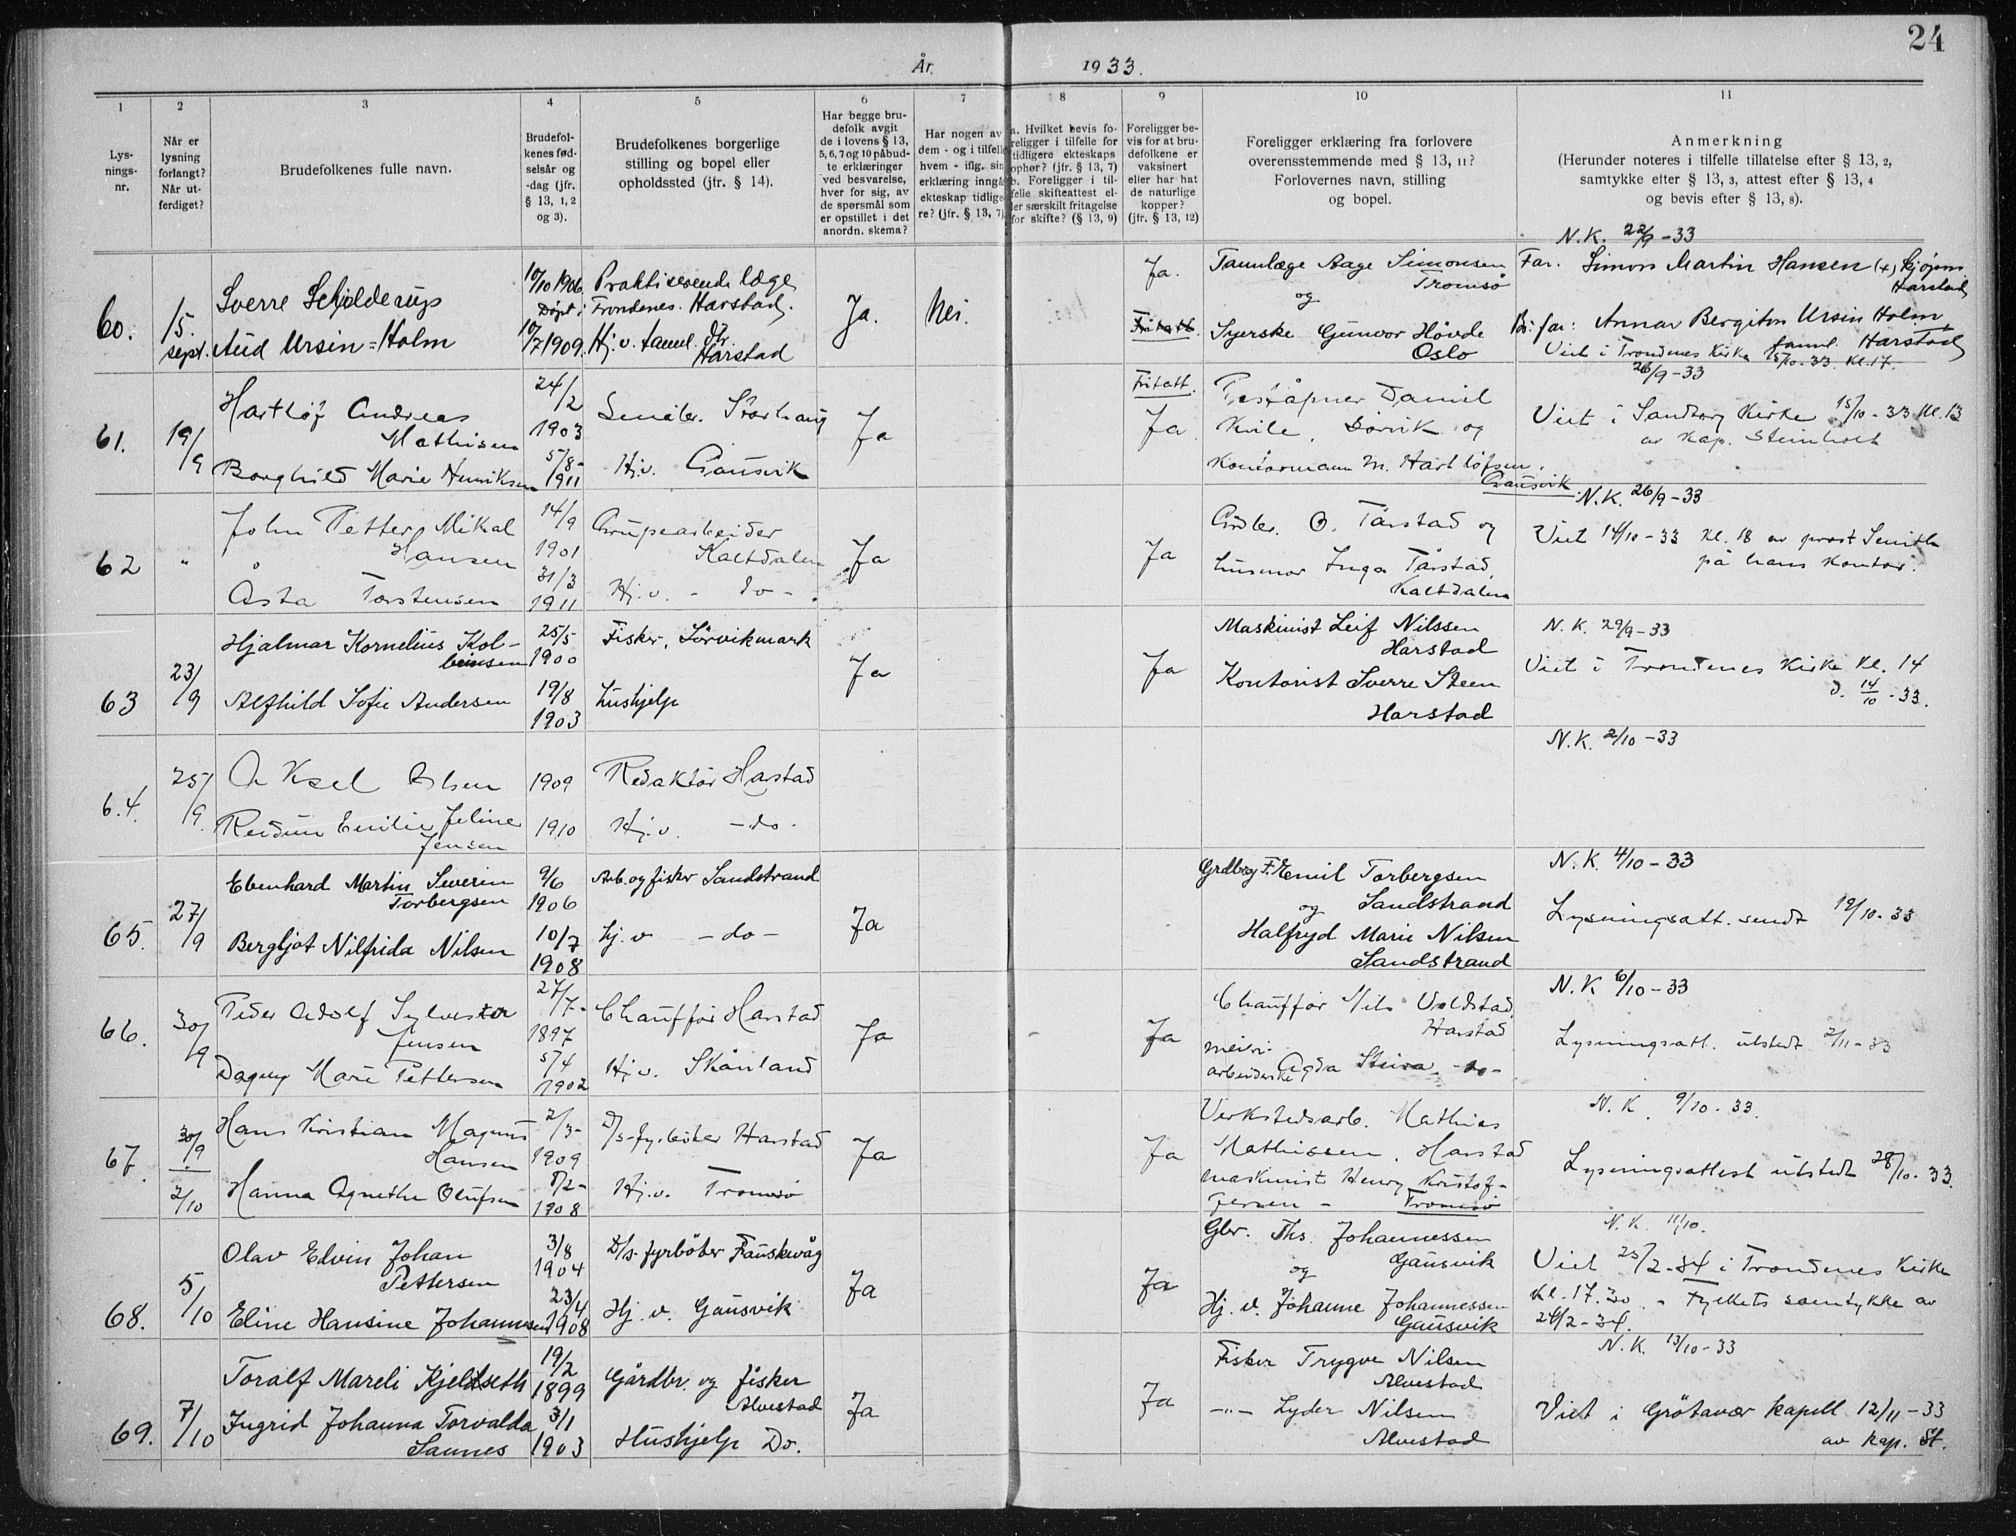 24
År. 1933.
1 2 3 4 5 6 7 8 9 10 11
Lys-
nings-
nr.
Når er
lysning
forlangt?
Når ut-
ferdiget?
Brudefolkenes fulle navn.
Brudefol-
kenes fød-
selsår og
-dag (jfr.
§ 13, 1, 2
og 3).
Brudefolkenes borgerlige
stilling og bopel eller
opholdssted (jfr. § 14).
Har begge bru-
defolk avgit
de i lovens § 13,
5, 6, 7 og 10 påbud-
te erklæringer
ved besvarelse,
hver for sig, av
de spørsmål som
er opstillet i det
anordn. skema?
Har nogen av
dem - og i tilfelle
hvem - iflg. sin
erklæring inngå
ekteskap tidlige
re? (jfr. § 13, 7)
a. Hvilket bevis fo-
religger i tilfelle for
tidligere ekteskaps
ophør? (jfr. § 13, 7)
b. Foreligger i til-
felle skifteattest el-
ler særskilt fritagelse
for skifte? (§ 13, 9)
Foreligger be-
vis for at bru-
defolkene er
vaksinert
eller har hat
de naturlige
kopper?
(jfr. § 13, 12)
Foreligger erklæring fra forlovere
overensstemmende med § 13, 11?
Forlovernes navn, stilling
og bopel.
Anmerkning
(Herunder noteres i tilfelle tillatelse efter § 13, 2,
samtykke efter § 13, 3, attest efter § 13, 4
og bevis efter § 13, 8).
60.
15.
sept.
Sverre Schjelderup
Aud Ursin=Holm
10/10 1906
Døpt i
10/7 1909.
Praktiserende læge
Trondenes. Harstad.
Hj. v. tannl. dtr.
Harstad
Ja.
Nei.
Ja.
Fritatt
Tannlæge Aage Simonsen
Tromsø
og
Syerske Gunvor Hovde
Oslo
N.K. 22/9-33
Far. Simon Martin Hansen (+)
Harstad
Br. far: Annar Bergiton Ursin Holm
tannl. Harstad
Viet i Trondenes Kirke 15/10-33. Kl. 17.
61.
19/9
Hartløf Andreas
Mathisen
Borghild Marie Henriksen
24/2
1903
5/8-
1911
Småbr. Storhaug
Hj.v. Gausvik
Ja
Fritatt
Ja
Poståpner Daniel
Kvile, Sørvik og
Kontormann M. Hartløfsen.
Gausvik
26/9-33
Viet i Sandtorg Kirke 15/10-33 Kl. 13
av Kap. Steinholt
62
"
John Petter Mikal
Hansen
Åsta Torstensen
14/9
1901
31/3
1911
Grupearbeider
Kaltdalen
Hj.v. - do -.
Ja
Ja
Grdbr. O. Tårstad og
husmor Inga Tårstad,
Kaltdalen
N.K. 26/9-33
Viet 14/10-33 Kl. 18 av prost Smith
på hans Kontor.
63
23/9
Hjalmar Kornelius Kol-
beinsen
Alfhild Sofie Andersen
25/5
1900
19/8
1903
Fisker, Sørvikmark
hushjelp
Ja
Ja
Maskinist Leif Nilssen
Harstad
Kontorist Sverre Steen
Harstad
N.K. 29/9-33
Viet i Trondenes Kirke Kl. 14
d. 14/10-33.
64.
25/9.
Aksel Olsen
Reidun Emilie Jeline
Jensen
1909
1910
Redaktør Harstad
Hj.v. -do-
N.K. 2/10-33
65.
27/9
Ebenhard Martin Severin
Torbergsen
Bergljot Nilfrida Nilsen
9/6
1906
10/7
1908
Arb. og fisker Sandstrand
hj.v -do-
Ja
Grdbrg F. Emil Torbergsen
Sandstrand
og
Halfryd Marie Nilsen
Sandstrand
N.K. 4/10-33
Lysningsatt. sendt 19/10-33
66.
30/9
Peder Adolf Sylvester
Jensen
Dagny Marie Pettersen
27/7-
1897
5/4
1902
Chauffør Harstad
Hj.v. Skånland
Ja
Ja
Chauffør Nils Voldstad,
Harstad
meieri-
arbeiderske Agda Steiro -do-
N.K 6/10-33
Lysningsatt. utstedt 2/11-33
67.
30/9.
2/10
Hans Kristian Magnus
Hansen
Hanna Agnethe Olufsen
2/3-
1909
8/2-
1908
D/s-fyrbøter Harstad
Hj.v. Tromsø
Ja
Ja
Verkstedsarb. Mathias
Mathissen, Harstad
maskinist Henry Kristof-
fersen - Tromsø
N.K. 9/10-33.
Lysningsattest utstedt 28/10-33.
68.
5/10
Olav Edvin Johan
Pettersen
Eline Hansine Johannessen
3/8
1904
23/4
1908
D/s-fyrbøter Fauskevåg
Hj. v. Gausvik
Ja
Ja
Gbr. Ths. Johannessen
Gausvik
og
Hj. v. Johanne Johannessen
Gausvik
N.K. 11/10.
Viet 25/2-34 i Trondenes Kirke
Kl. 17.30. - Fylkets samtykke av
24/2-34.
69.
7/10
Toralf Mareli Kjeldseth
Ingrid Johanna Torvalda
Saunes
19/2
1899
3/1
1903
Gårdbr. og fisker
Alvestad
Hushjelp Do.
Ja
Ja
Fisker Trygve Nilsen
Alvestad
-"- Lyder Nilsen
Alvestad
N.K. 13/10-33
Viet i Grøtavær kapell 12/11-33
av kap. St.